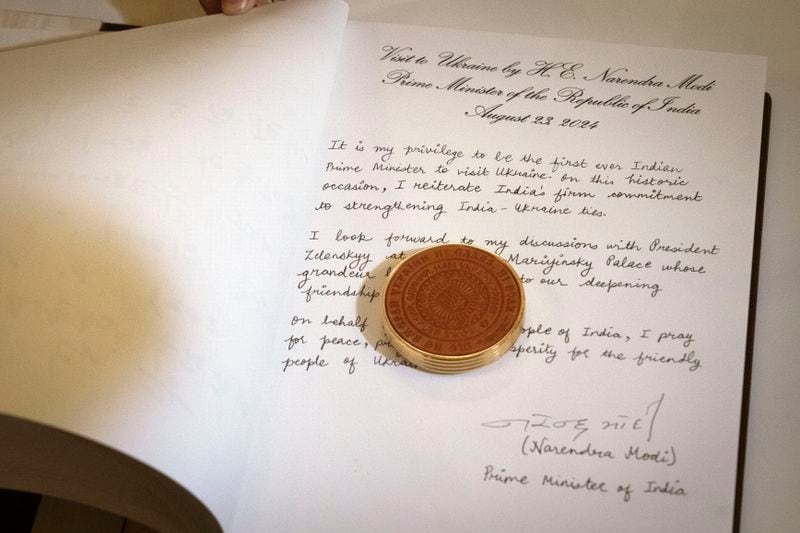 Visit to Ukraine by H.E. Narendra Modi
Prime Minister of the Republic of India
August 23, 2024
It is my privilege to be the first ever Indian
Prime Minister to visit Ukraine. On this historic
occasion, I reiterate India's firm commitment
to strengthening India - Ukraine ties.
I look forward to my discussions with President
Zelenskyy at Mariyinsky Palace whose
grandeur to our deepening
friendship
On behalf people of India, I pray
for peace, for the friendly
people of Ukraine
(Narendra Modi)
Prime Minister of India